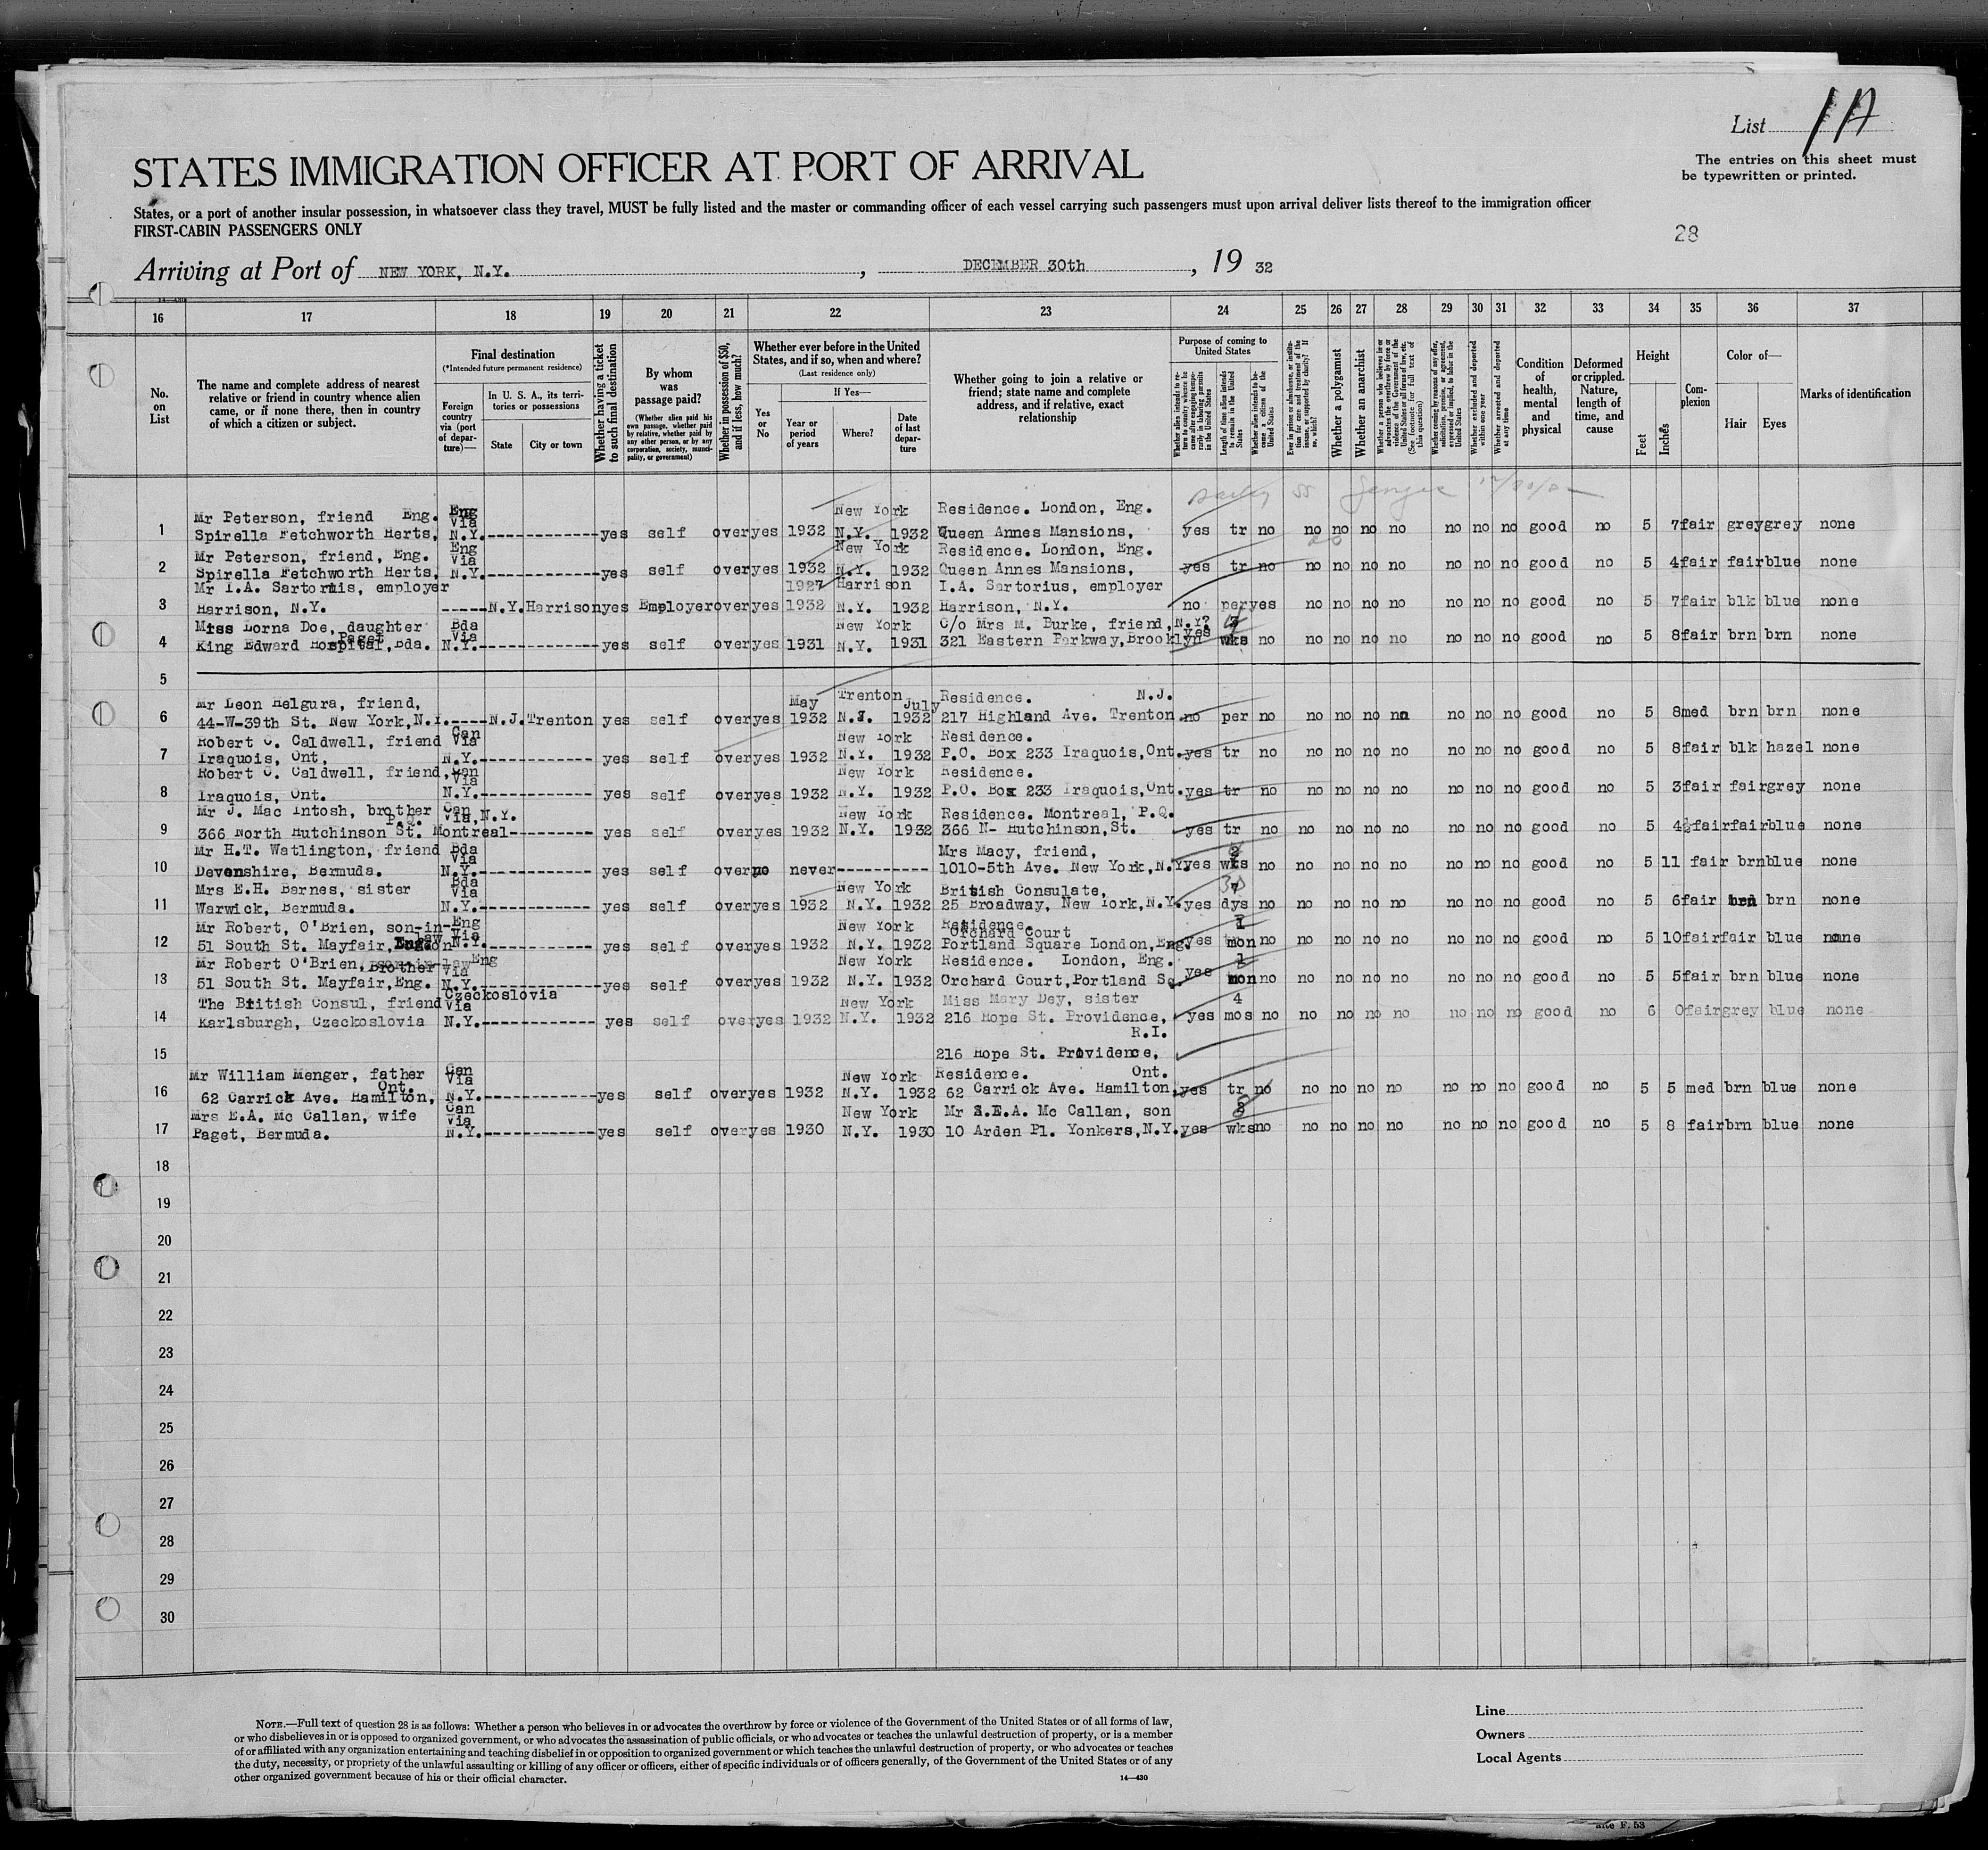 List 1A
The entries on this sheet must
be typewritten or printed.
STATES IMMIGRATION OFFICER AT PORT OF ARRIVAL
States, or a port of another insular possession, in whatsoever class they travel, MUST be fully listed and the master or commanding officer of each vessel carrying such passengers must upon arrival deliver lists thereof to the immigration officer
FIRST-CABIN PASSENGERS ONLY
28
Arriving at Port of NEW YORK, N.Y. , DECEMBER 30th , 19 32
16 17 18 19 20 21 22 23 24 25 26 27 28 29 30 31 32 33 34 35 36 37
No. on List
The name and complete address of nearest relative or friend in country whence alien came, or if none there, then in country of which a citizen or subject.
Final destination
(*Intended future permanent residence)
Foreign country via (port of departure)—
In U. S. A., its territories or possessions
State
City or town
Whether having a ticket to such final destination
By whom was passage paid?
(Whether alien paid his own passage, whether paid by relative, whether paid by any other person, or by any corporation, society, municipality, or government)
Whether in possession of $50, and if less, how much?
Whether ever before in the United States, and if so, when and where?
(Last residence only)
Yes or No
If Yes—
Year or period of years
Where?
Date of last departure
Whether going to join a relative or friend; state name and complete address, and if relative, exact relationship
Purpose of coming to United States
Whether alien intends to return to country whence he came after engaging temporarily in laboring pursuits in the United States
Length of time alien intends to remain in the United States
Whether alien intends to become a citizen of the United States
Ever in prison or almshouse, or institution for care and treatment of the insane, or supported by charity? If so, which?
Whether a polygamist
Whether an anarchist
Whether a person who believes in or advocates the overthrow by force or violence of the Government of the United States or all forms of law, etc. (See footnote for full text of this question)
Whether coming by reasons of any offer, solicitation, promise, or agreement, expressed or implied, to labor in the United States
Whether excluded and deported within one year
Whether arrested and deported at any time
Condition of health, mental and physical
Deformed or crippled. Nature, length of time, and cause
Height
Feet
Inches
Complexion
Color of—
Hair
Eyes
Marks of identification
Mr Peterson, friend Eng. Eng Via New York Residence. London, Eng.
1 Spirella Fetchworth Herts, N.Y.------------yes self over yes 1932 N.Y. 1932 Queen Annes Mansions, yes tr no no no no no no no no good no 5 7 fair grey grey none
Mr Peterson, friend, Eng. Eng Via New York Residence. London, Eng.
2 Spirella Fetchworth Herts, N.Y.------------yes self over yes 1932 N.Y. 1932 Queen Annes Mansions, yes tr no no no no no no no no good no 5 4 fair fair blue none
Mr I.A. Sartorius, employer 1927 Harrison I.A. Sartorius, employer
3 Harrison, N.Y. -----N.Y. Harrison yes Employer over yes 1932 N.Y. 1932 Harrison, N.Y. no per yes no no no no no no no good no 5 7 fair blk blue none
Miss Lorna Doe, daughter Bda Via New York C/o Mrs M. Burke, friend, N.Y?
4 King Edward Hospital, Paget Bda. N.Y.------------yes self over yes 1931 N.Y. 1931 321 Eastern Parkway, Brooklyn yes wks no no no no no no no no good no 5 8 fair brn brn none
5
Mr Leon Helgura, friend, May Trenton July Residence. N.J.
6 44-W-39th St. New York, N.Y.-----N.J. Trenton yes self over yes 1932 N.J. 1932 217 Highland Ave. Trenton no per no no no no no no no no good no 5 8 med brn brn none
Robert C. Caldwell, friend Can Via New York Residence.
7 Iraquois, Ont, N.Y.------------yes self over yes 1932 N.Y. 1932 P.O. Box 233 Iraquois, Ont. yes tr no no no no no no no no good no 5 8 fair blk hazel none
Robert C. Caldwell, friend, Can Via New York Residence.
8 Iraquois, Ont. N.Y.------------yes self over yes 1932 N.Y. 1932 P.O. Box 233 Iraquois, Ont. yes tr no no no no no no no no good no 5 3 fair fair grey none
Mr J. Mac Intosh, brother Can Via, N.Y. New York Residence. Montreal, P.Q.
9 366 North Hutchinson St. Montreal P.Q.---------yes self over yes 1932 N.Y. 1932 366 N- Hutchinson, St. yes tr no no no no no no no no good no 5 4½ fair fair blue none
Mr H.T. Watlington, friend Bda Via Mrs Macy, friend, 2
10 Devonshire, Bermuda. N.Y.------------yes self over no never---------- 1010-5th Ave. New York, N.Y. yes wks no no no no no no no no good no 5 11 fair brn blue none
Mrs E.H. Barnes, sister Bda Via New York British Consulate, 30
11 Warwick, Bermuda. N.Y.------------yes self over yes 1932 N.Y. 1932 25 Broadway, New York, N.Y. yes dys no no no no no no no no good no 5 6 fair brn brn none
Mr Robert, O'Brien, son-in-law Eng Via New York Residence. Orchard Court 1
12 51 South St. Mayfair, London N.Y.------------yes self over yes 1932 N.Y. 1932 Portland Square London, Eng. yes mon no no no no no no no no good no 5 10 fair fair blue none
Mr Robert O'Brien, Brother Eng Via New York Residence. London, Eng. 1
13 51 South St. Mayfair, Eng. N.Y.------------yes self over yes 1932 N.Y. 1932 Orchard Court, Portland Sq. yes mon no no no no no no no no good no 5 5 fair brn blue none
The British Consul, friend Czeckoslovia Via New York Miss Mary Dey, sister 4
14 Karlsburgh, Czeckoslovia N.Y.------------yes self over yes 1932 N.Y. 1932 216 Hope St. Providence, R.I. yes mos no no no no no no no no good no 6 0 fair grey blue none
15 216 Hope St. Providence,
Mr William Menger, father Can Via New York Residence. Ont.
16 62 Carrick Ave. Hamilton, Ont. N.Y.------------yes self over yes 1932 N.Y. 1932 62 Carrick Ave. Hamilton, yes tr no no no no no no no no good no 5 5 med brn blue none
Mrs E.A. Mc Callan, wife Can Via New York Mr S.E.A. Mc Callan, son
17 Paget, Bermuda. N.Y.------------yes self over yes 1930 N.Y. 1930 10 Arden Pl. Yonkers, N.Y. yes wks no no no no no no no no good no 5 8 fair brn blue none
18
19
20
21
22
23
24
25
26
27
28
29
30
NOTE.—Full text of question 28 is as follows: Whether a person who believes in or advocates the overthrow by force or violence of the Government of the United States or of all forms of law,
or who disbelieves in or is opposed to organized government, or who advocates the assassination of public officials, or who advocates or teaches the unlawful destruction of property, or is a member
of or affiliated with any organization entertaining and teaching disbelief in or opposition to organized government or which teaches the unlawful destruction of property, or who advocates or teaches
the duty, necessity, or propriety of the unlawful assaulting or killing of any officer or officers, either of specific individuals or of officers generally, of the Government of the United States or of any
other organized government because of his or their official character.
14—430
Line
Owners
Local Agents